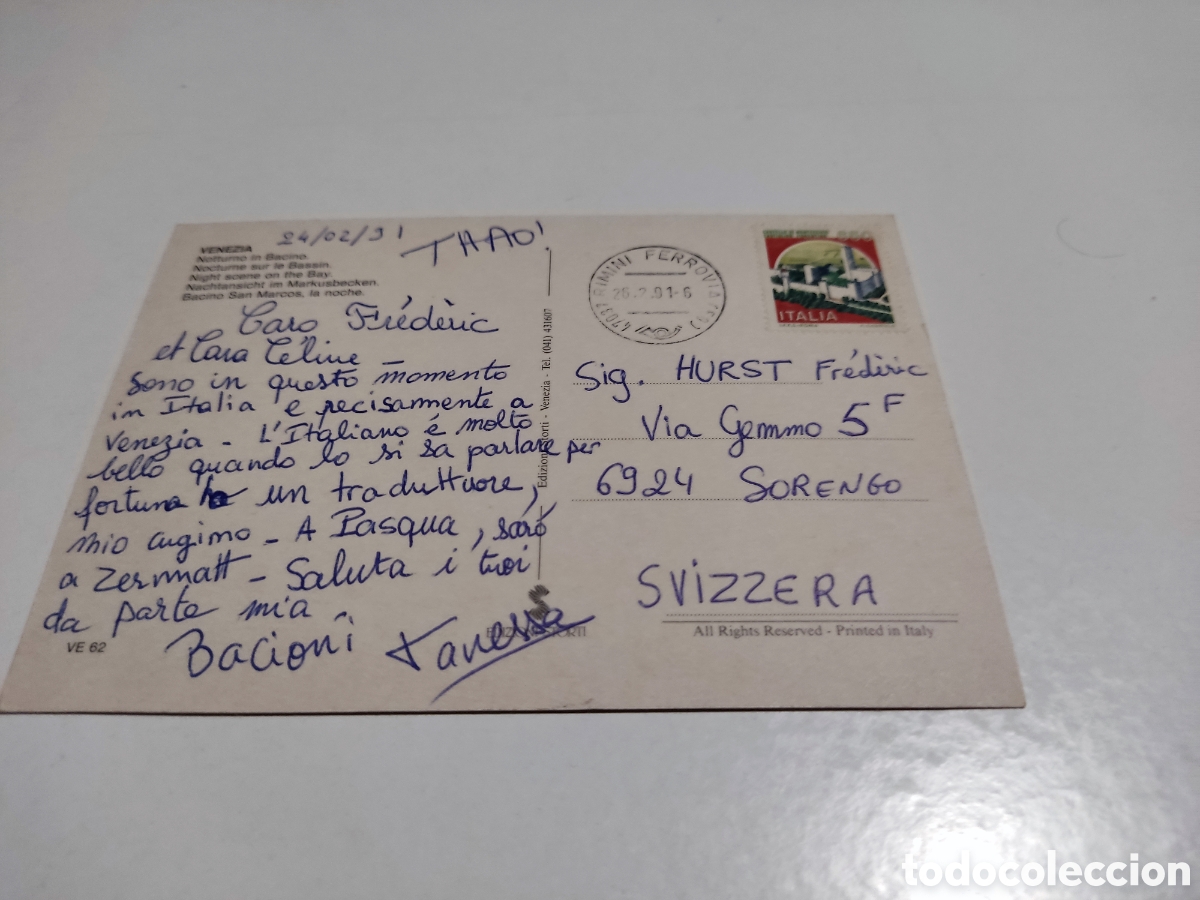 VENEZIA
Notturno in Bacino.
Nocturne sur le Bassin.
Night scene on the Bay.
Nachtansicht im Markusbecken.
Bacino San Marcos, la noche.
24/02/91
TAAO!
Caro Frédèric
et Cara Céline _
sono in questo momento
in Italia e precisamente a
Venezia - L'Italiano é molto
bello quando lo si sa parlare per
fortuna ho un traduttuore,
mio cugimo - A Pasqua, saró
a Zermatt - Saluta i tuoi
da parte mia.
Bacioni Vanessa
VE 62
Storti - Venezia - Tel. (041) 431607
STORTI
RIMINI FERROVIA
26.2.91-6
47037
ITALIA
Sig. HURST Frédèric
Via Gemmo 5 F
6924 SORENGO
SVIZZERA
All Rights Reserved - Printed in Italy
todocoleccion